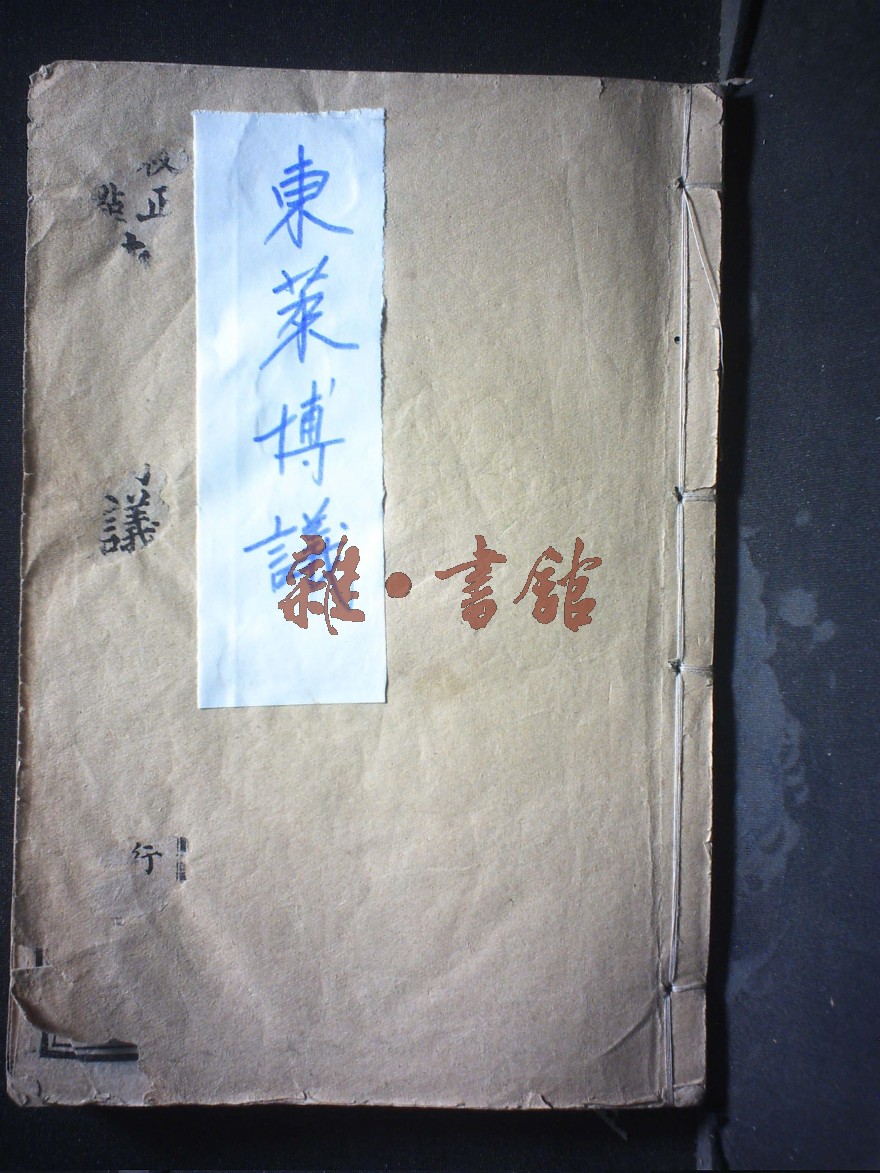 東萊博議
雜·書館
正
點
議
行